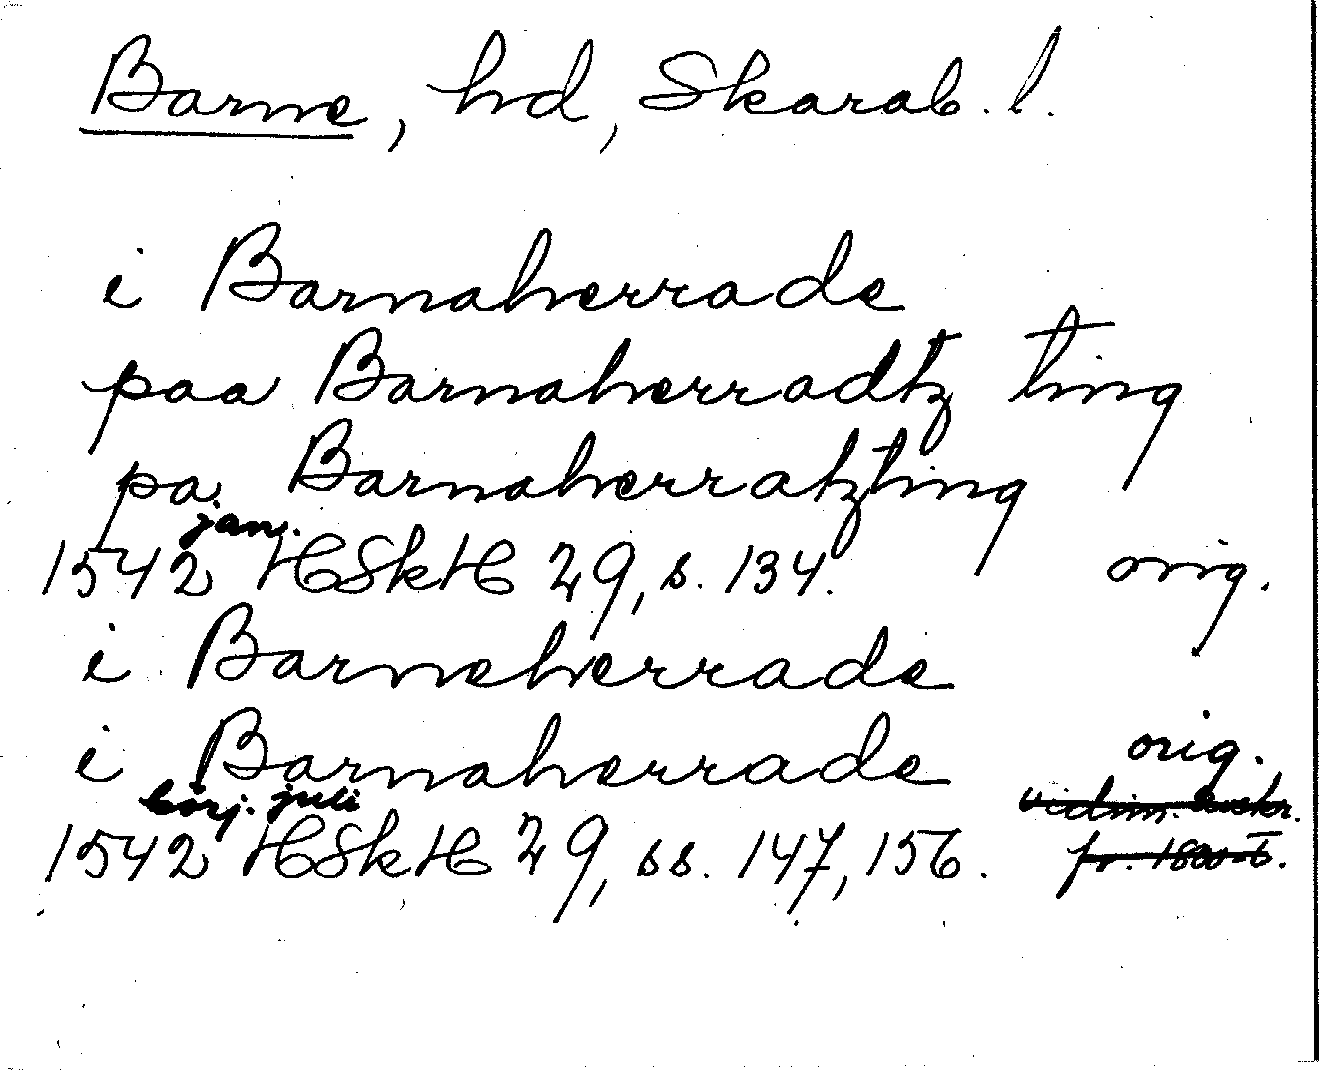 Barne, hd, Skarab. l.
i Barnaherrade
paa Barnaherradtz ting
pa Barnaherratzting
jan.
1542 HSkH 29, s. 134. orig.
i Barneherrade
i Barnaherrade orig.
börj. juli vidim. avskr.
1542 HSkH 29, ss. 147, 156. fr. 1800-t.